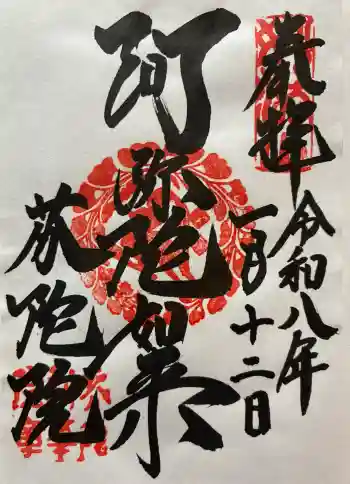 奉拝
令和八年
一月十二日
阿弥陀如来
荻陀院